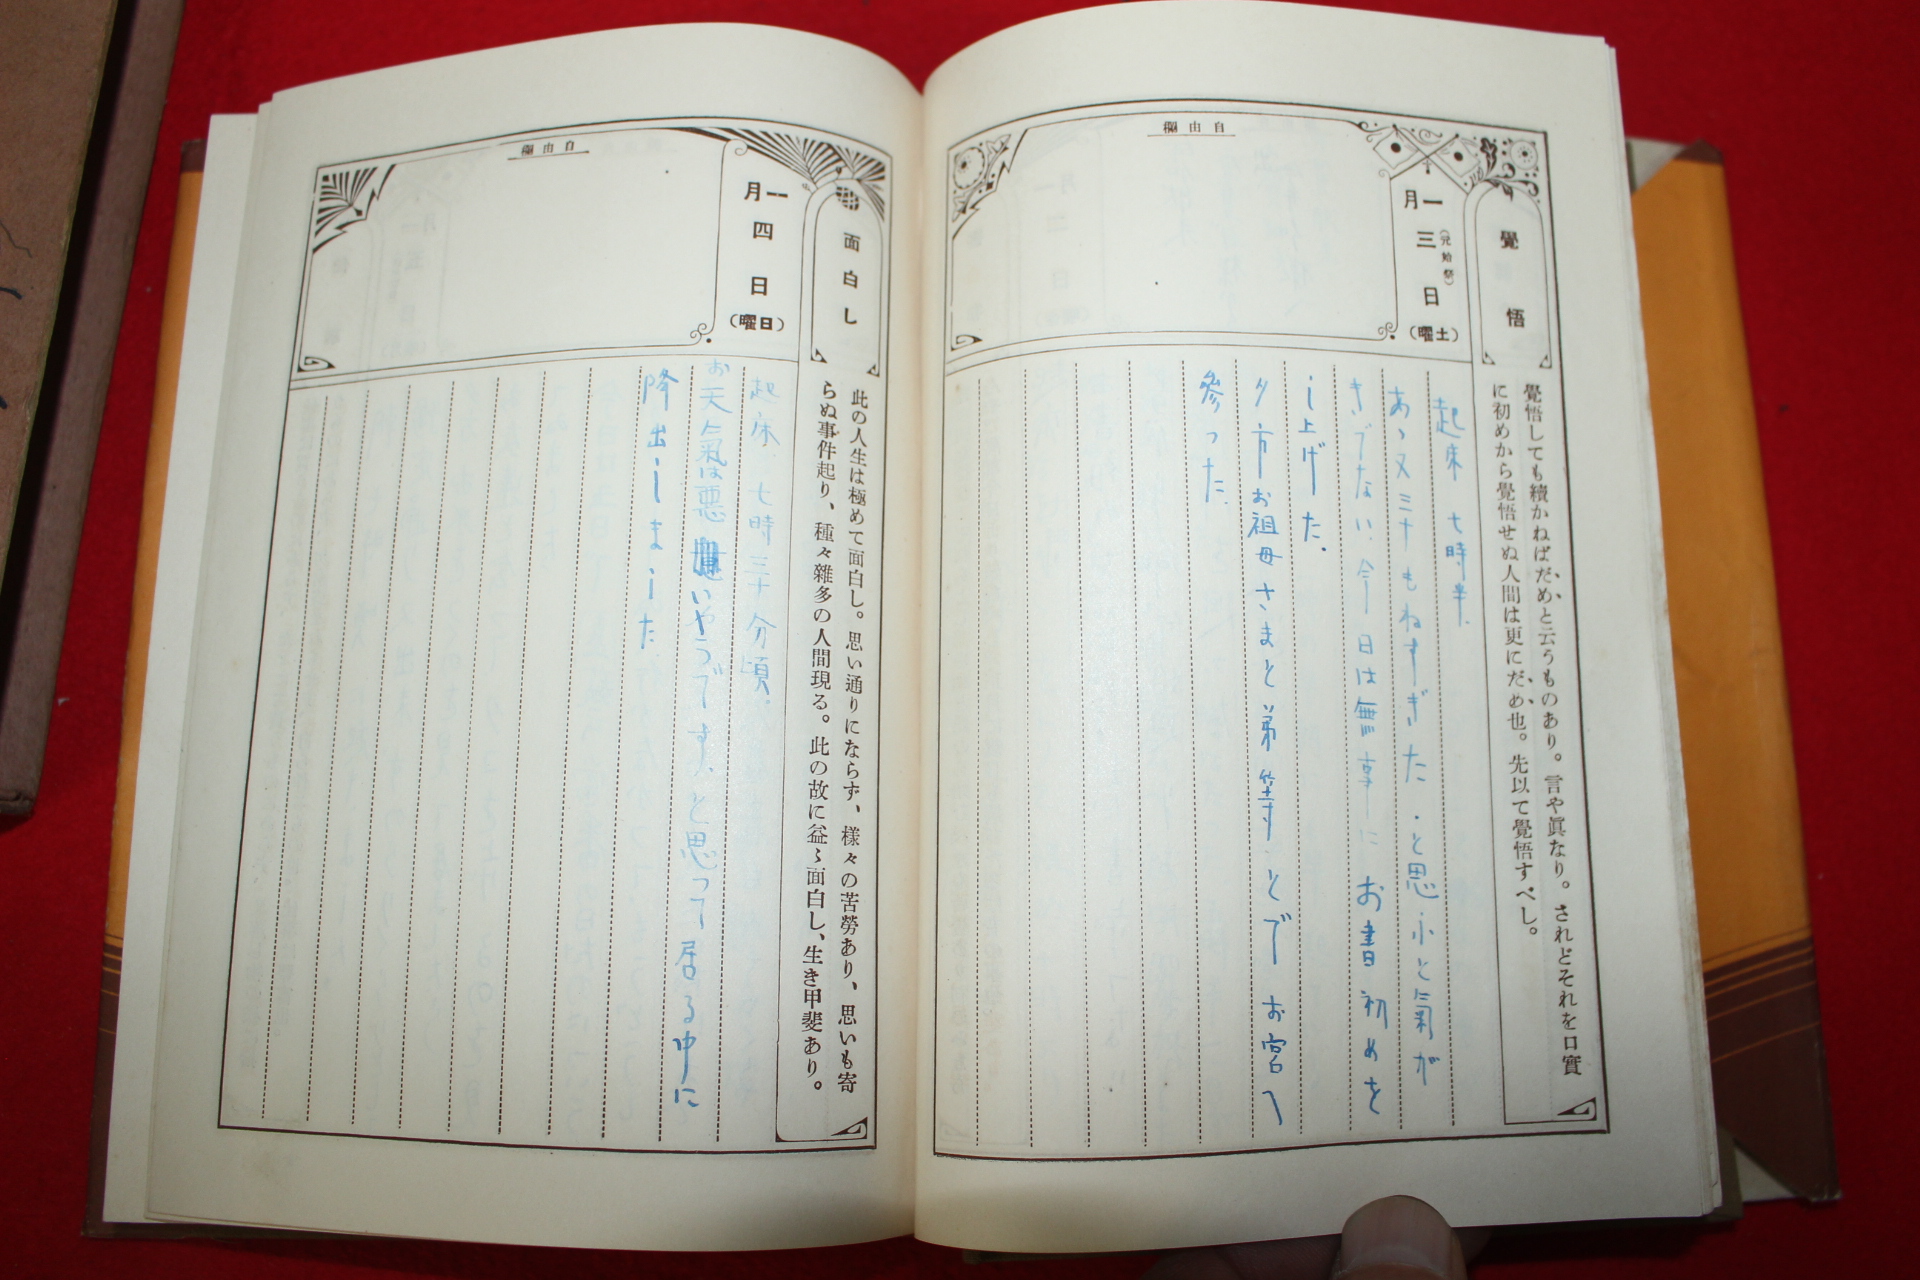 覺悟
覺悟しても續かねばだめと云うものあり。言や眞なり。されどそれを口實
に初めから覺悟せぬ人間は更にだめ也。先以て覺悟すべし。
一月三日
(元始祭)
(土曜)
自由欄
起床 七時半.
あゝ又三十もねすぎた.と思ふと氣が
きでない.今日は無事にお書初めを
し上げた.
夕方お祖母さまと弟等とでお宮へ
參った.
面白し
此の人生は極めて面白し。思い通りにならず、樣々の苦勞あり、思いも寄
らぬ事件起り、種々雜多の人間現る。此の故に益〻面白し、生き甲斐あり。
一月四日
(日曜)
自由欄
起床.七時三十分頃.
お天氣は悪いやうです、と思って居る中に
降出しました